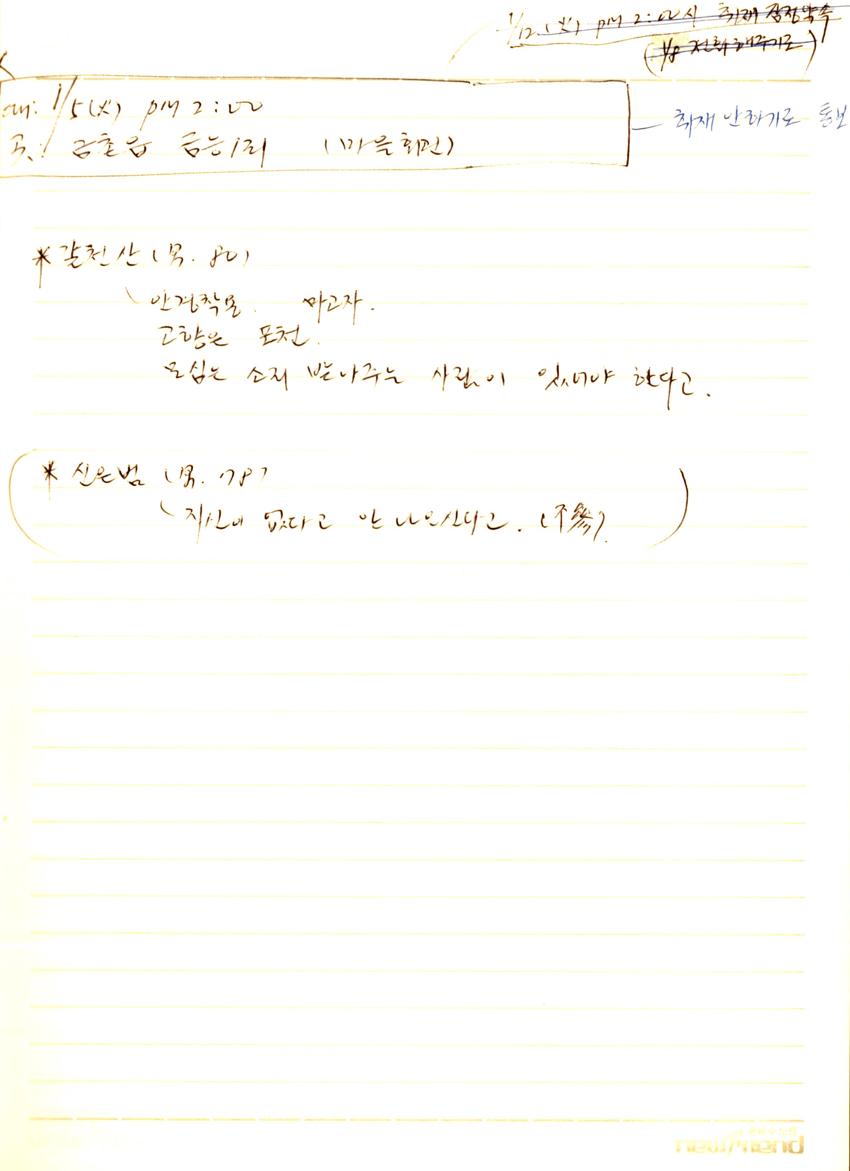 1/12 (火) PM 2:00시 취재 잠정약속
(1/8 전화해주기로)
때: 1/5(火) PM 2:00
곳: 금촌읍 금능1리 (마을회관)
취재 안하기로 통보
* 갈천산 (男. 80)
안경착용. 마고자.
고향은 포천.
모심는 소리 받아주는 사람이 있어야 한다고.
* 신은범 (男. 78)
자신이 없다고 안 나오신다고. (不參).
newfriend